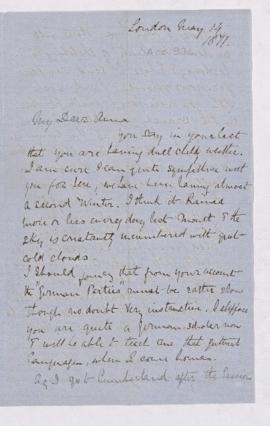 London May 14
1879.
My Dear Anna
you say in your last
that you are having dull cold weather.
I am sure I can quite sympathise with
you for here, we have been having almost
a second Winter. I think it Rained
more or less every day last month & the
sky is constantly encumbered with great
cold clouds.
I should fancy that from your account
the "German Parties" must be rather slow
though no doubt very instructive. I suppose
you are quite a German scholar now
& will be able to teach me that guttural
language, when I come home.
As I go to Cumberland after the